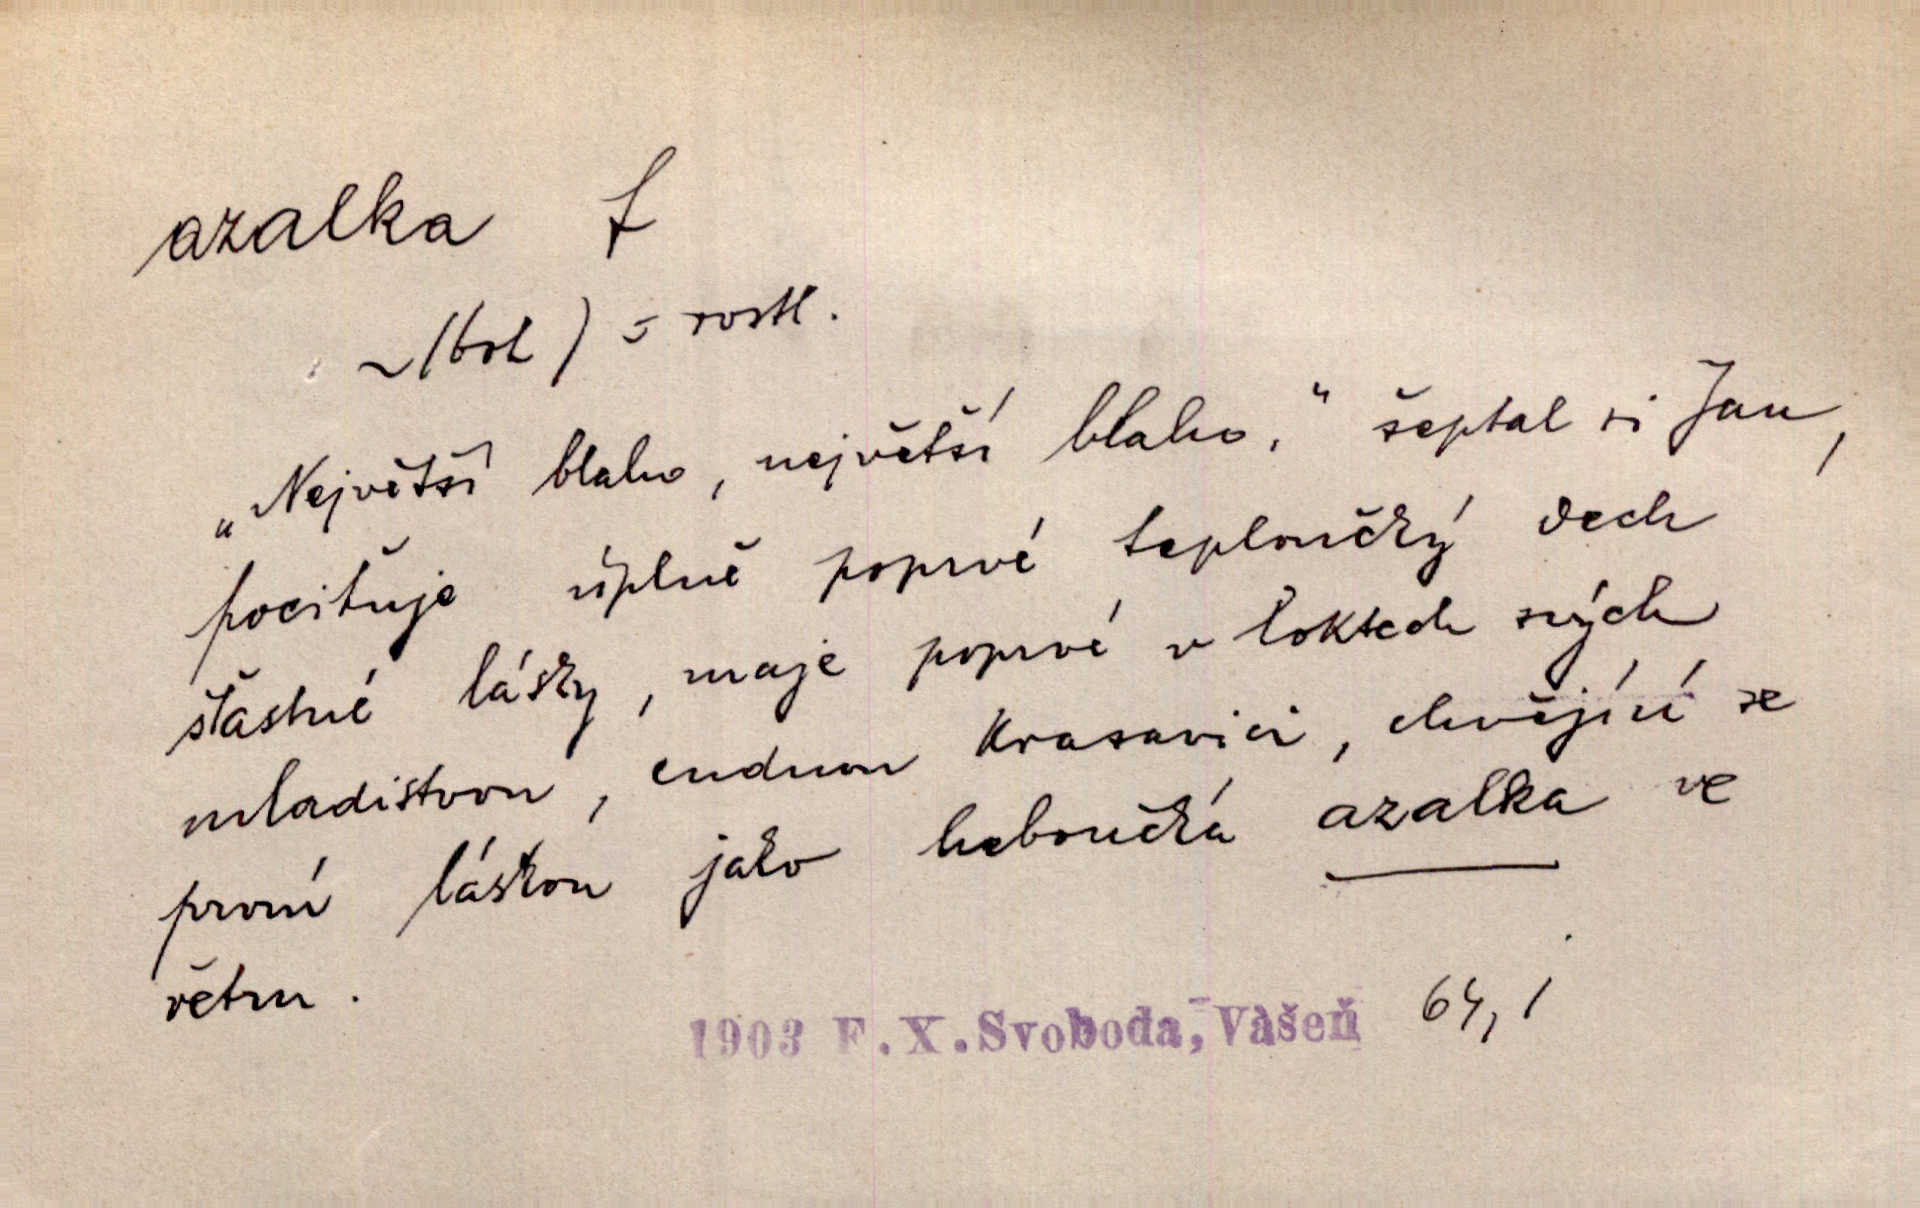 azalka f
~ (bot) = rostl.
„Největší blaho, největší blaho," šeptal si Jan,
pociťuje úplně poprvé teploučký dech
šťastné lásky, maje poprvé v loktech svých
mladistvou, cudnou krasavici, chvějící se
první láskou jako heboučká azalka ve
větru.
1903 F.X.Svoboda, Vášeň 64,1